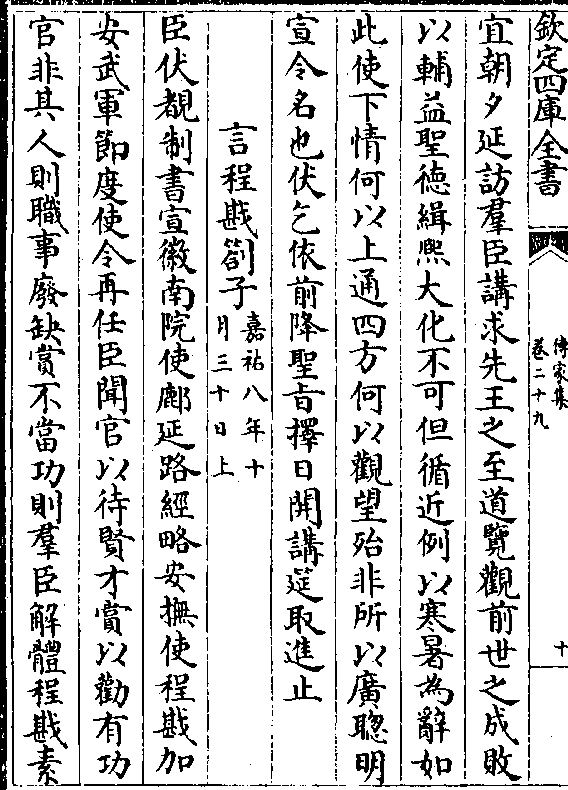 欽定四庫全書
傳家集
卷二十九
十
宜朝夕延訪羣臣講求先王之至道覽觀前世之成敗
以輔益聖德緝熈大化不可但循近例以寒暑為辭如
此使下情何以上通四方何以觀望殆非所以廣聰明
宣令名也伏乞依前降聖旨擇日開講筵取進止
言程戡劄子嘉祐八年十
月三十日上
臣伏覩制書宣徽南院使鄜延路經略安撫使程戡加
安武軍節度使令再任臣聞官以待賢才賞以勸有功
官非其人則職事廢缺賞不當功則羣臣解體程戡素